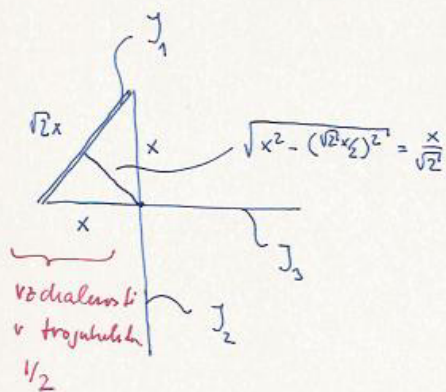 J₁
√2x
x
√(x² - (√2x/2)²) = x/√2
x
J₃
vzdálenosti
v trojúhelníku
J₂
1/2